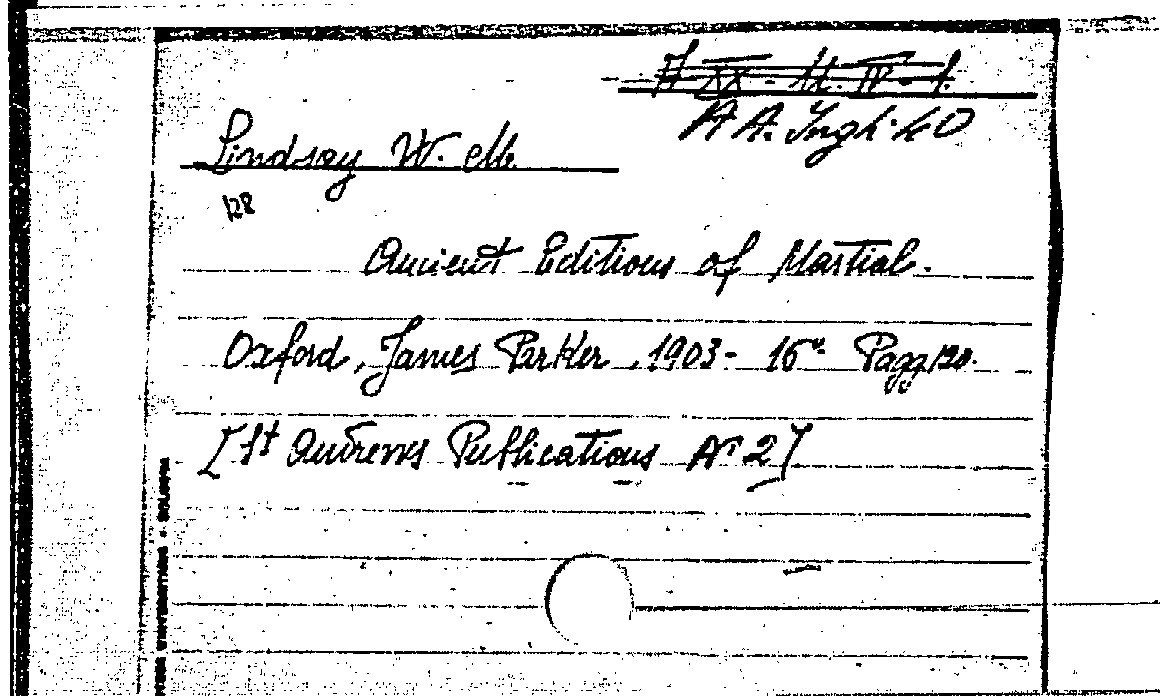 A XX - M. IV - 1.
A A. Ingl. 40
Lindsay W. M.
128
Ancient Editions of Martial.
Oxford, James Parker, 1903 - 16° Pagg. 120.
[St Andrews Publications N° 2]
BOLOGNA